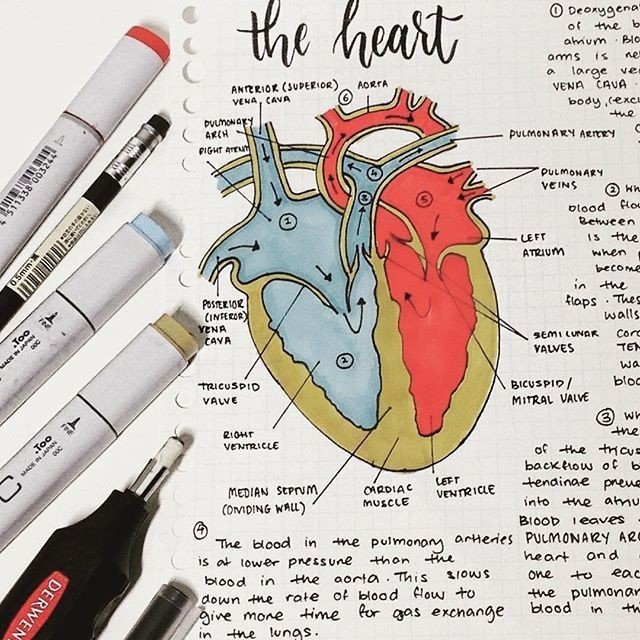 the heart
ANTERIOR (SUPERIOR)
VENA CAVA
⑥ AORTA
PULMONARY
ARCH
RIGHT ATRIUM
PULMONARY ARTERY
PULMONARY
VEINS
LEFT
ATRIUM
SEMI LUNAR
VALVES
BICUSPID/
MITRAL VALVE
POSTERIOR
(INFERIOR)
VENA
CAVA
TRICUSPID
VALVE
RIGHT
VENTRICLE
MEDIAN SEPTUM
(DIVIDING WALL)
CARDIAC
MUSCLE
LEFT
VENTRICLE
①
②
③
④
⑤
① Deoxygena
of the b
atrium. Blo
arms is re
a large ve
VENA CAVA.
body, (exc
the
② Wh
blood flo
Between
is the
when
becom
in the
flaps. Thes
walls
Cor
TEN
wa
blo
③ Wh
the
of the tricus
backflow of b
tendinae preve
into the atriu
Blood leaves
PULMONARY ARC
heart and
one to eac
the pulmona
blood in th
④ The blood in the pulmonary arteries
is at lower pressure than the
blood in the aorta. This slows
down the rate of blood flow to
give more time for gas exchange
in the lungs.
4 511338 003244
0.5mm
.Too
MADE IN JAPAN
OOC
FINE
.Too
MADE IN JAPAN
OOC
FINE
C
DERWEN